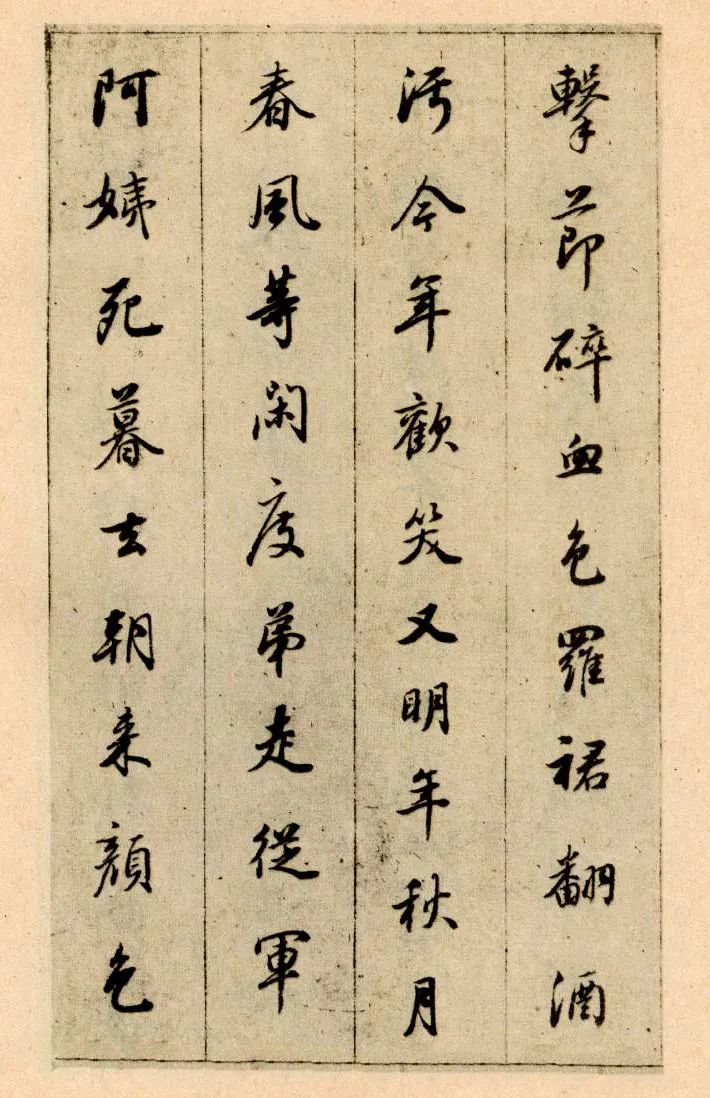 擊節碎血色羅裙翻酒
污今年歡笑又明年秋月
春風等閑度弟走從軍
阿姨死暮去朝來顏色